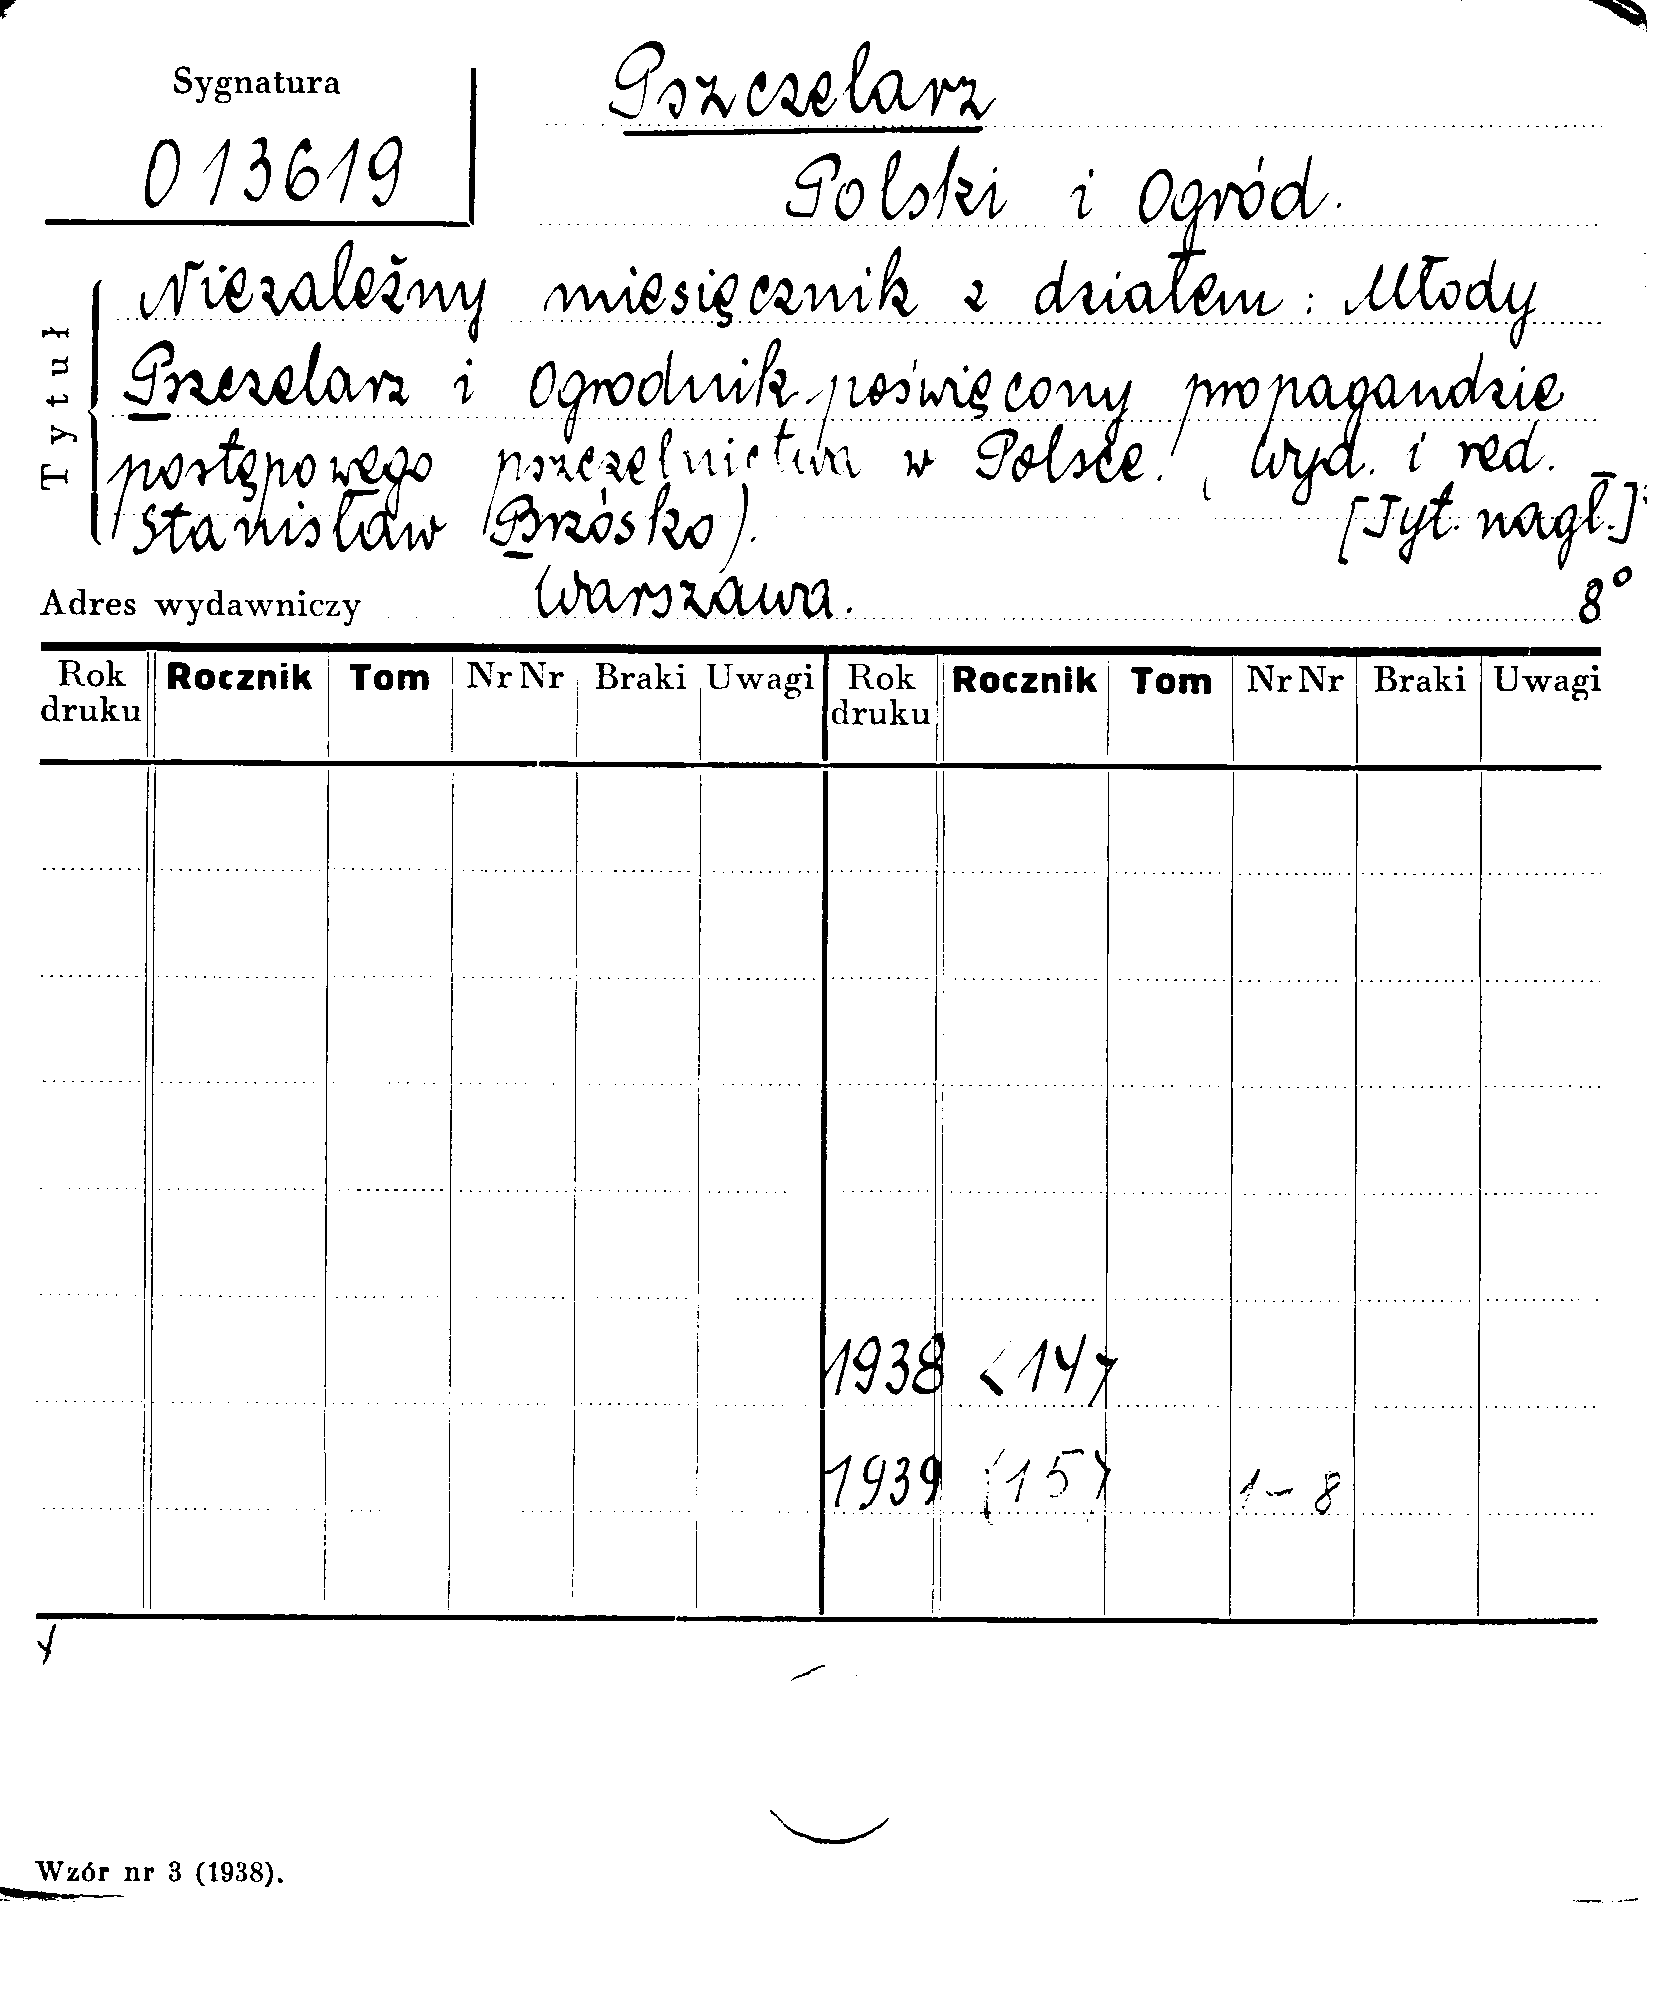 Sygnatura
013619
Pszczelarz
Polski i Ogród.
Tytuł
Niezależny miesięcznik z działem: Młody
Pszczelarz i Ogrodnik poświęcony propagandzie
postępowego pszczelnictwa w Polsce. (Wyd. i red.
Stanisław Brzósko). [Tyt. nagł.]
Adres wydawniczy Warszawa. 8°
Rok druku Rocznik Tom Nr Nr Braki Uwagi Rok druku Rocznik Tom Nr Nr Braki Uwagi
1938 <14>
1939 <15> 1-8
Wzór nr 3 (1938).